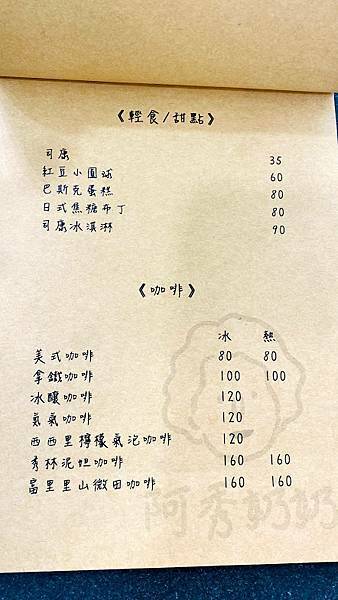 《輕食/甜點》
司康 35
紅豆小圓球 60
巴斯克蛋糕 80
日式焦糖布丁 80
司康冰淇淋 90
《咖啡》
冰 熱
美式咖啡 80 80
拿鐵咖啡 100 100
冰釀咖啡 120
氮氣咖啡 120
西西里檸檬氣泡咖啡 120
秀林泥怛咖啡 160 160
富里里山微田咖啡 160 160
阿秀奶奶